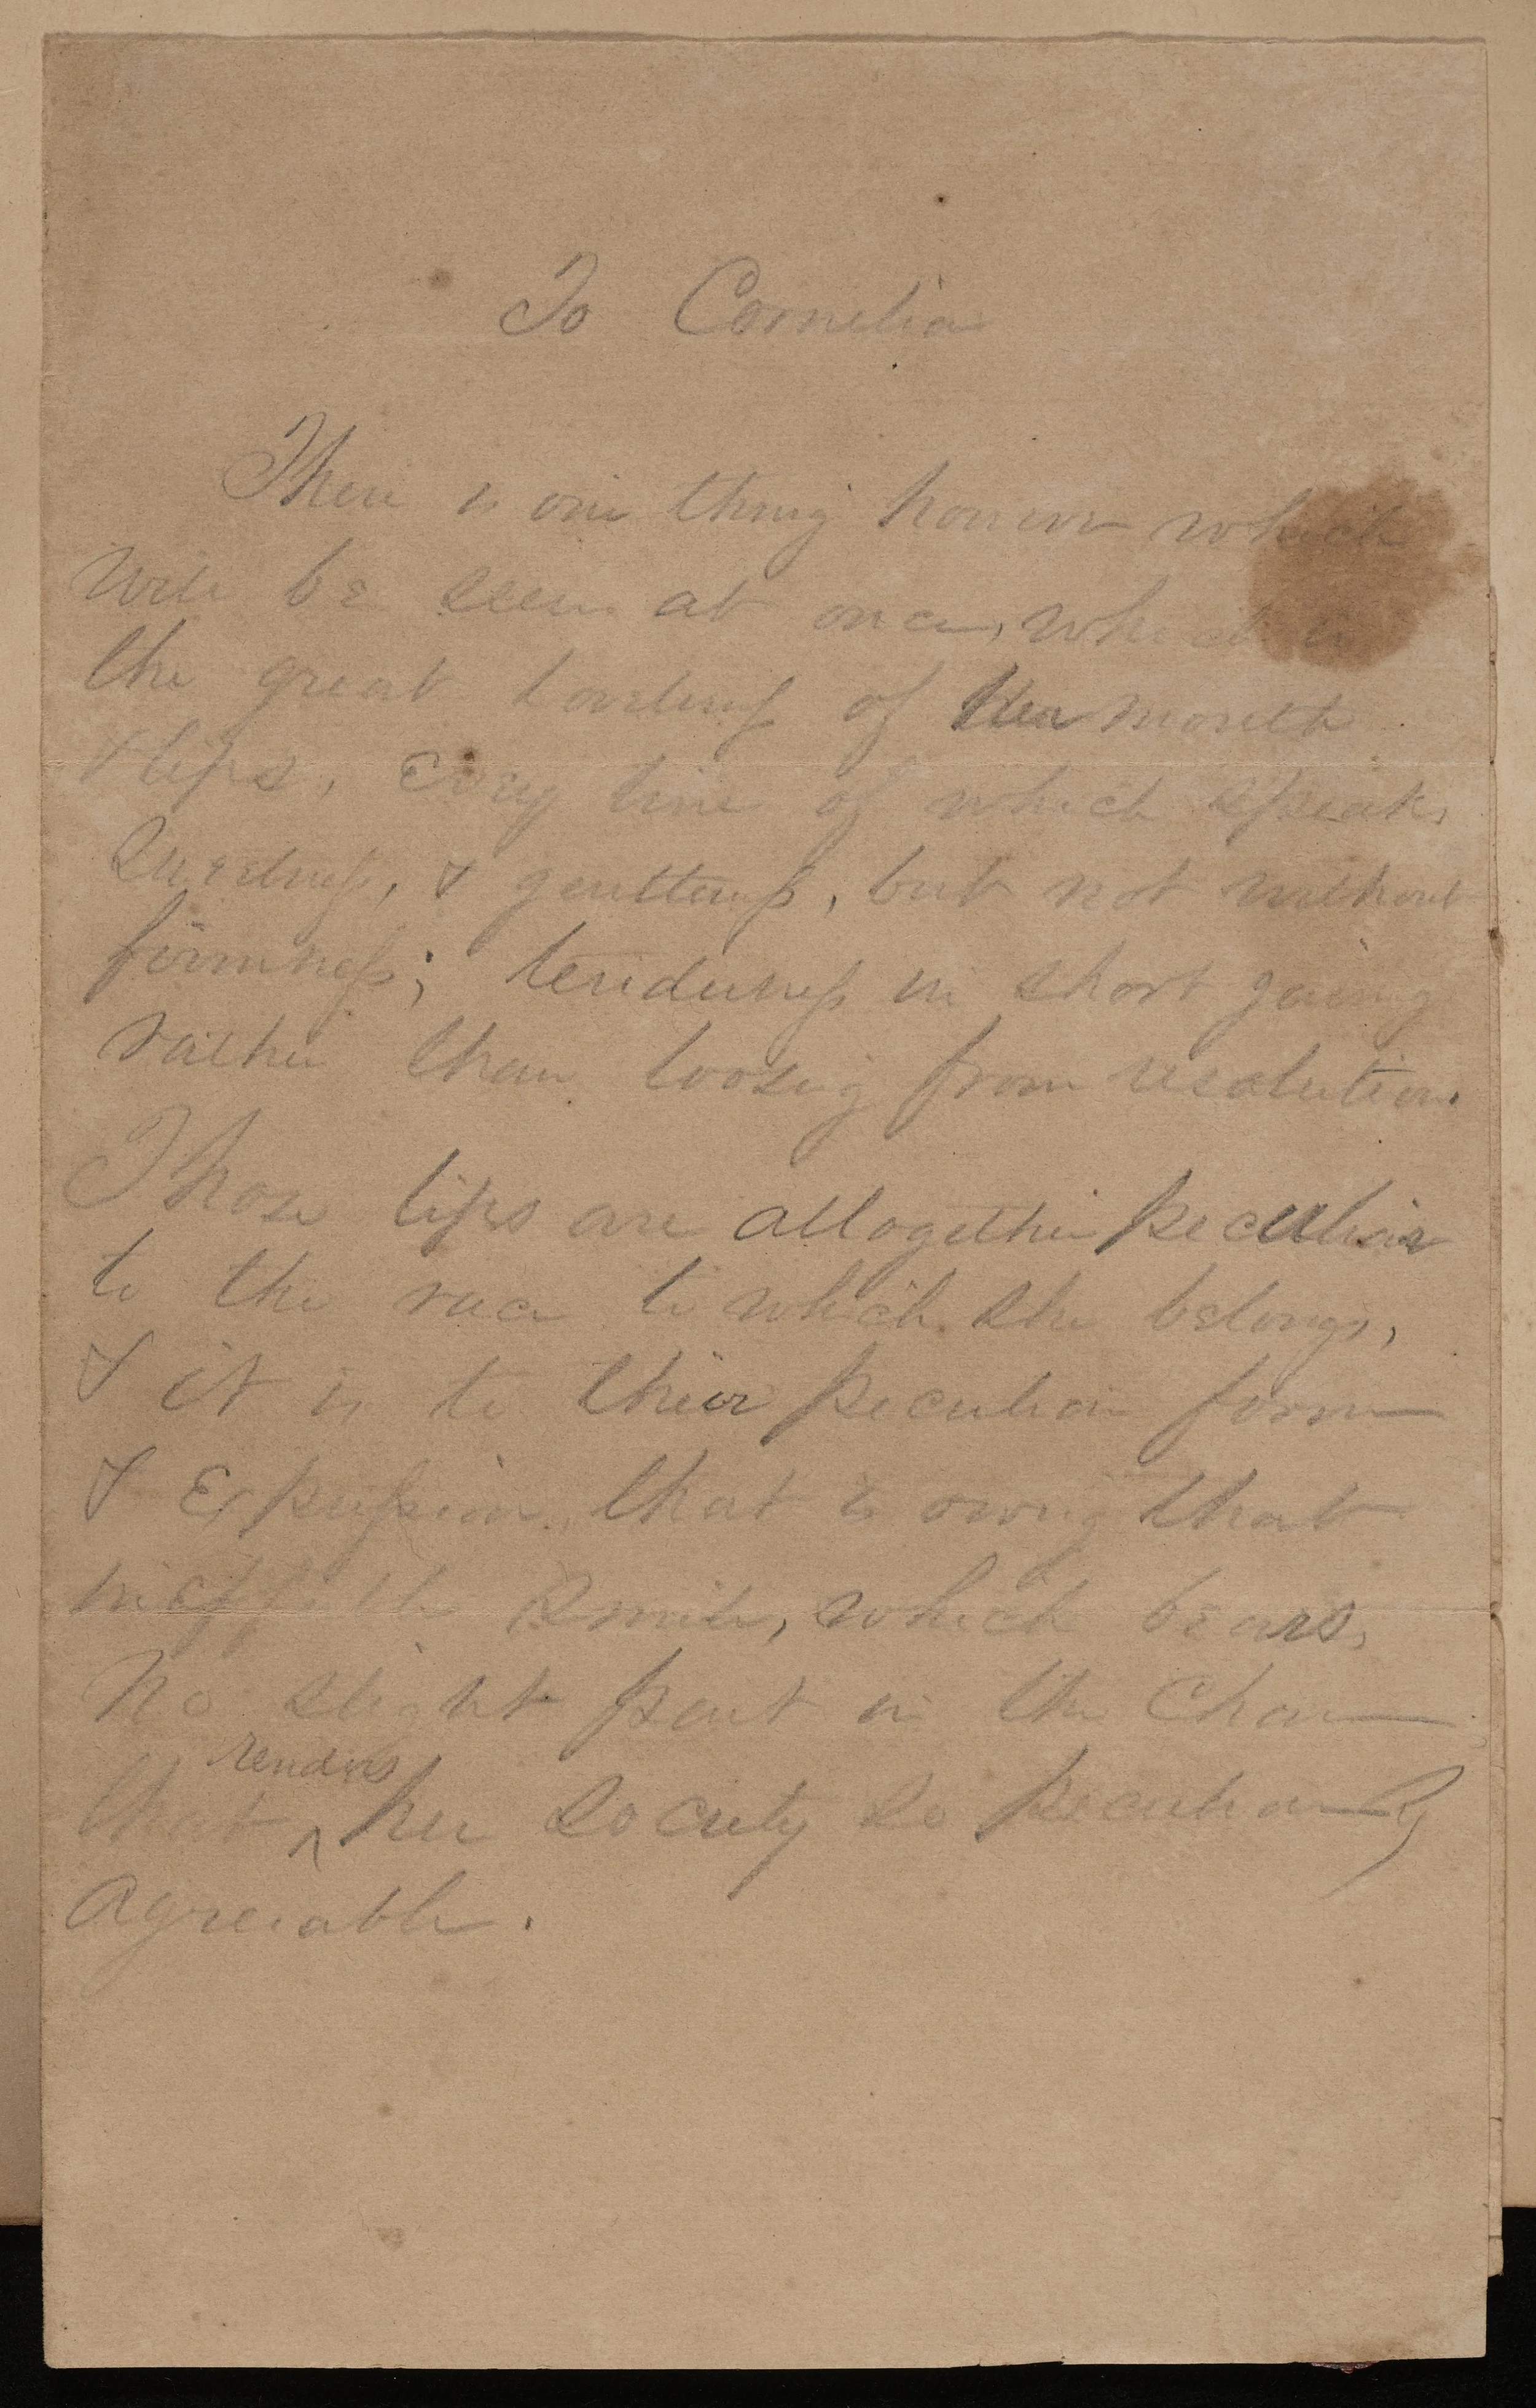 To Cornelia
There is one thing however which
will be seen at once, which is
the great loveliness of her mouth
& lips, every line of which speaks
Sweetness, & gentleness, but not without
firmness; tenderness in short gaining
rather than loosing from resolution.
Those lips are altogether peculiar
to the race to which she belongs,
& it is to their peculiar form
& Expression, that is owing that
ineffable smile, which bears,
No slight part in the Charm
renders
that ^ her Society so peculiarly
Agreeable.